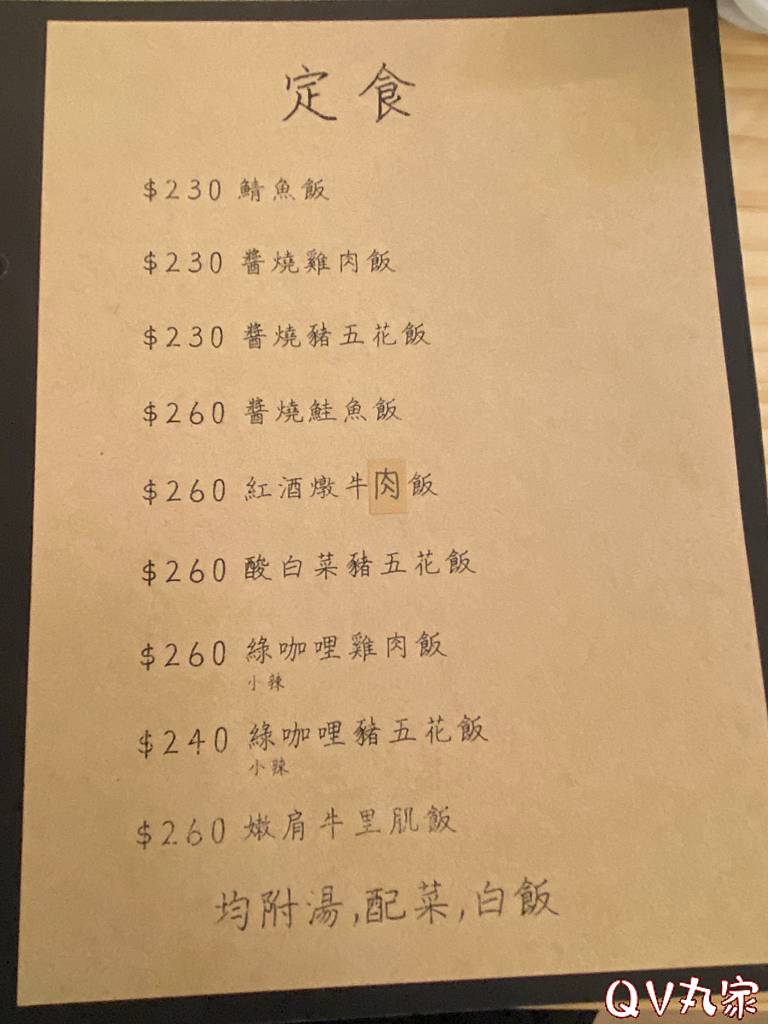 定食
$230 鯖魚飯
$230 醬燒雞肉飯
$230 醬燒豬五花飯
$260 醬燒鮭魚飯
$260 紅酒燉牛肉飯
$260 酸白菜豬五花飯
$260 綠咖哩雞肉飯
小辣
$240 綠咖哩豬五花飯
小辣
$260 嫩肩牛里肌飯
均附湯,配菜,白飯
QV丸家